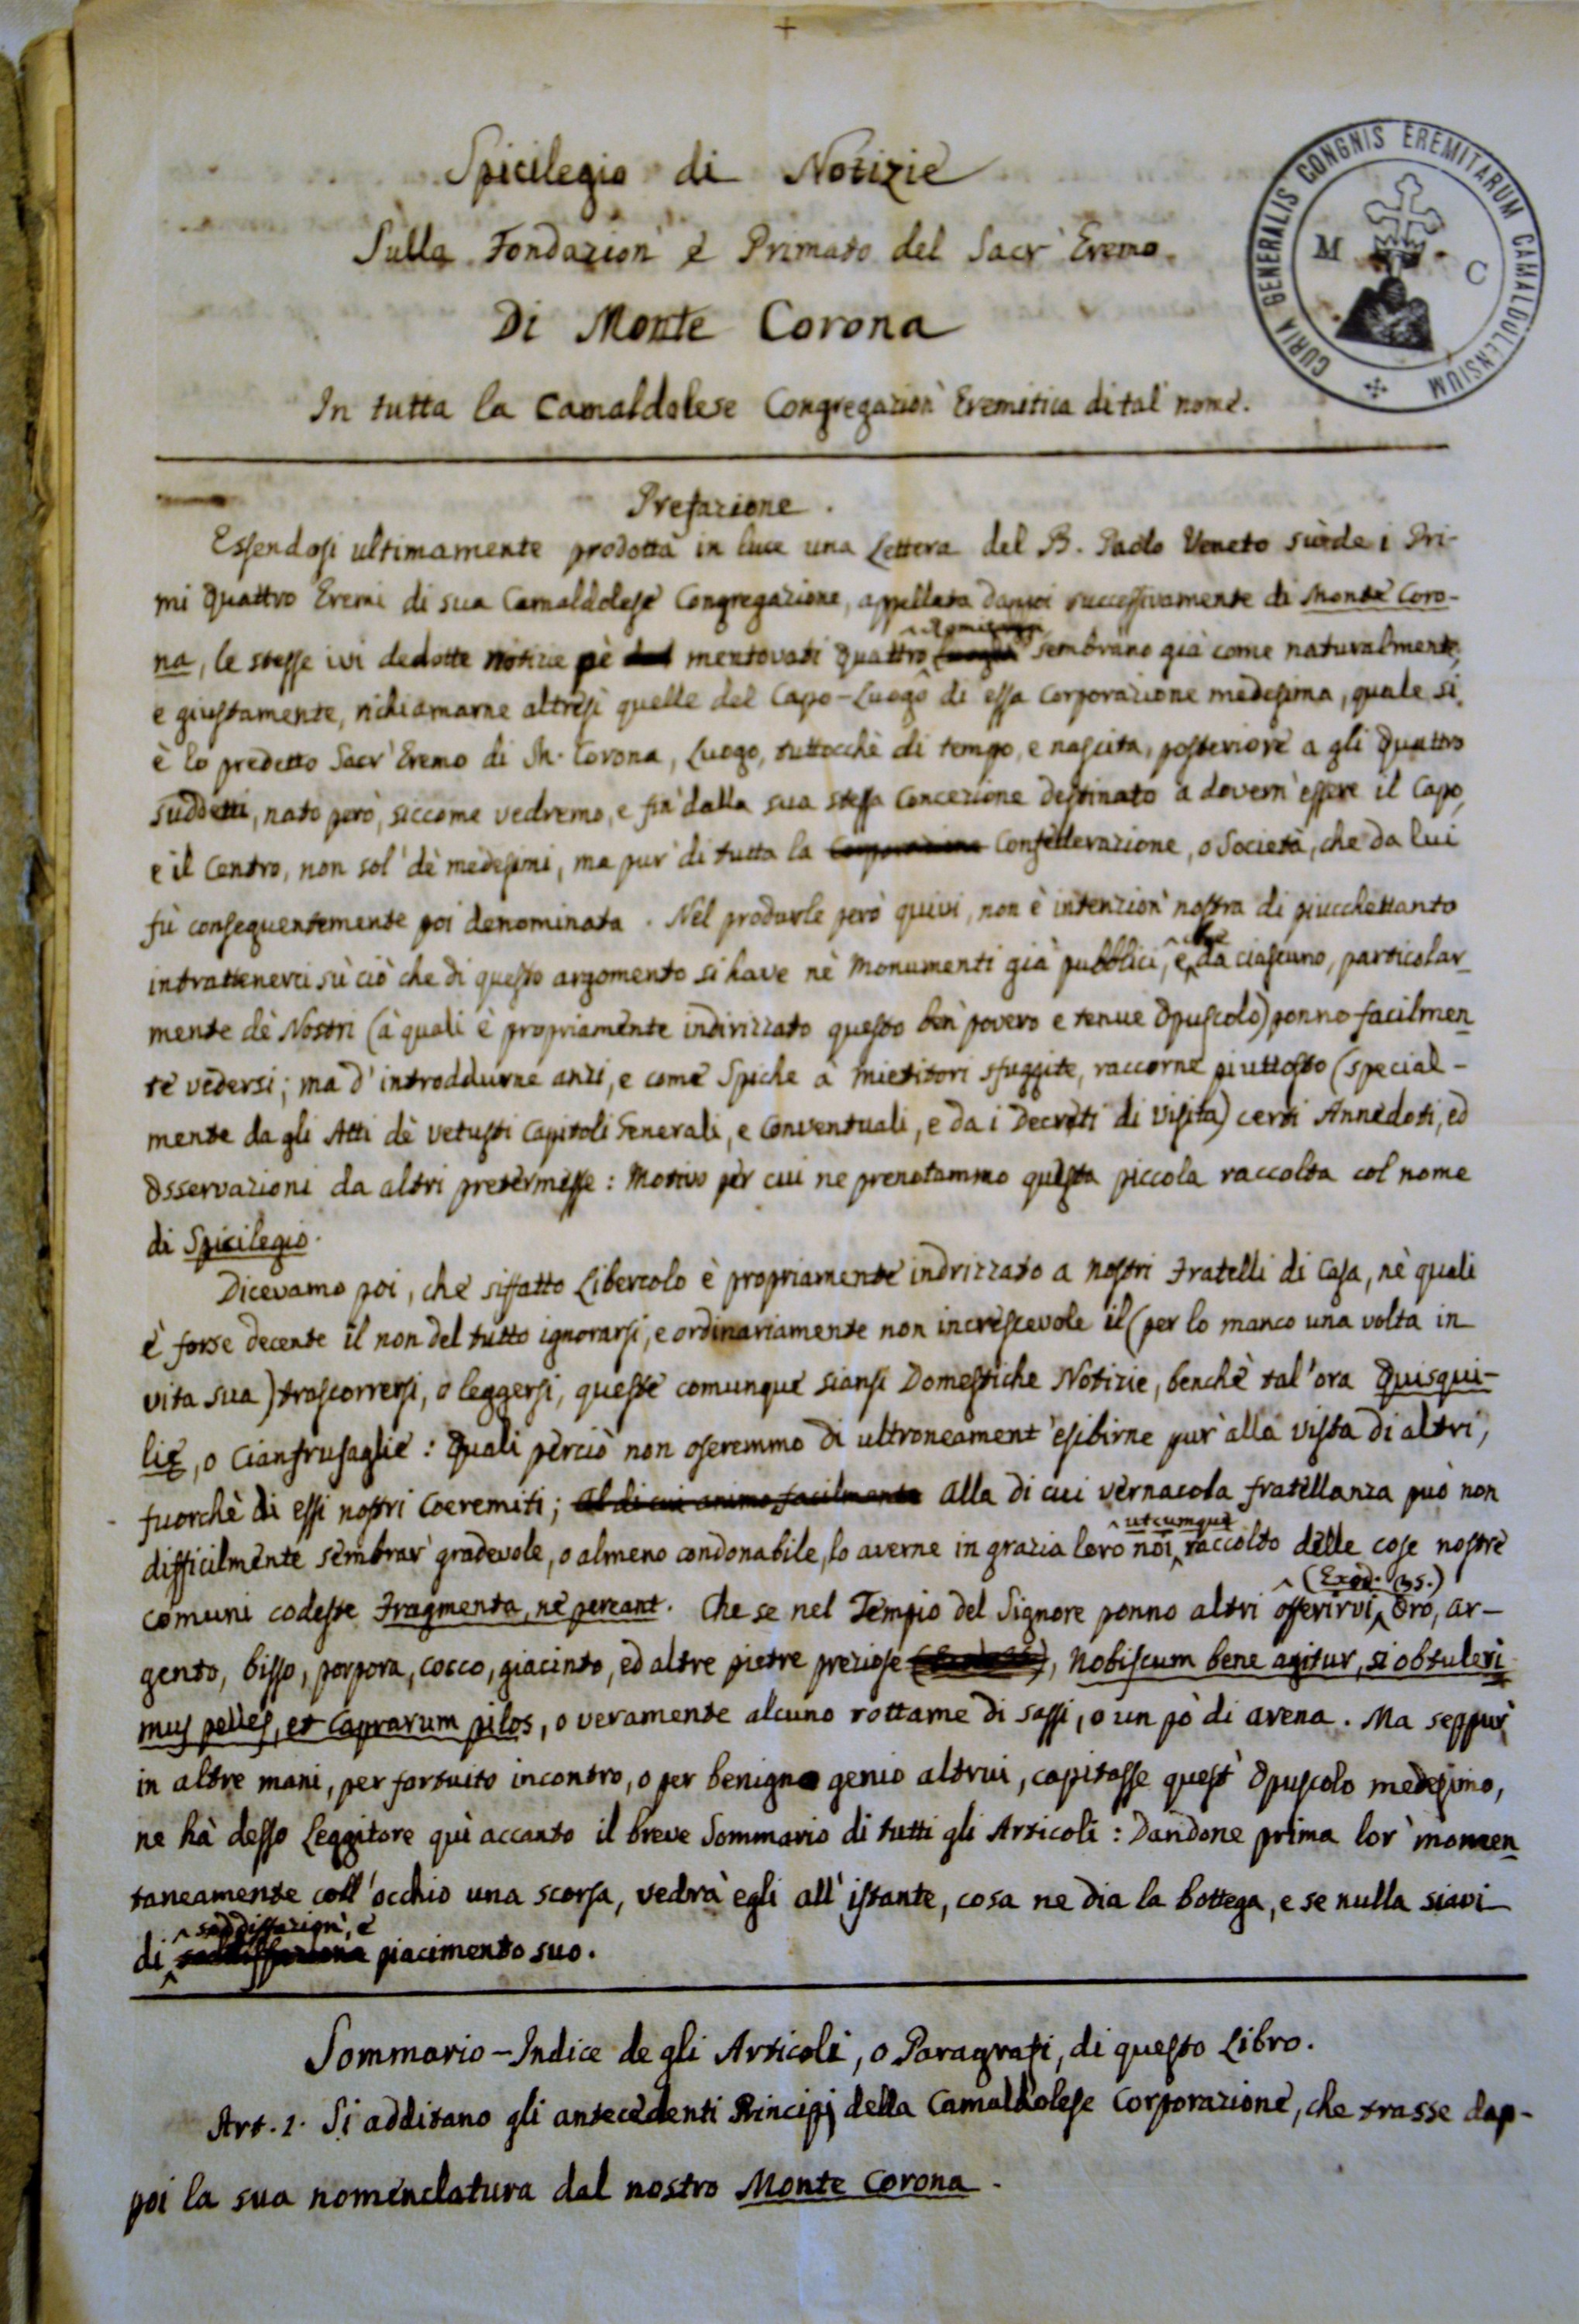 +
Spicilegio di Notizie
Sulla Fondazion' e Primato del Sacr' Eremo
Di Monte Corona
In tutta la Camaldolese Congregazion' Eremitica di tal' nome.
CURIA GENERALIS CONGNIS EREMITARUM CAMALDULENSIUM
M C
Prefazione.
Essendosi ultimamente prodotta in luce una Lettera del B. Paolo Veneto su de i Pri-
mi Quattro Eremi di sua Camaldolese Congregazione, appellata dappoi successivamente di Monte Coro-
na, le stesse ivi dedotte notizie pè mentovati Quattro sembrano già come naturalmente,
e giustamente, richiamarne altresì quelle del Capo-Luogo di essa Corporazione medesima, quale si
è lo predetto Sacr' Eremo di M. Corona, Luogo, tuttocchè di tempo, e nascita, posteriore a gli Quattro
suddetti, nato però, siccome vedremo, e fin' dalla sua stessa Concezione destinato a dovern' essere il Capo,
e il Centro, non sol' dè medesimi, ma pur' di tutta la Corporazione Confederazione, o Società, che da lui
fù conseguentemente poi denominata. Nel produrle però quivi, non è intenzion' nostra di piucchettanto
intrattenerci sù ciò che di questo argomento si have nè Monumenti già pubblici, e che da ciascuno, particolar-
mente dè Nostri (à quali è propriamente indirizzato questo ben povero e tenue Opuscolo) ponno facilmen
te vedersi; ma d' introddurne anzi, e come Spiche a' mietitori sfuggite, raccorne piuttosto (special-
mente da gli Atti dè vetusti Capitoli Generali, e Conventuali, e da i Decreti di Visita) certi Annedoti, ed
Osservazioni da altri pretermesse: Motivo per cui ne prenotammo questa piccola raccolta col nome
di Spicilegio.
Dicevamo poi, che siffatto Libercolo è propriamente indrizzato a nostri Fratelli di Casa, nè quali
è forse decente il non del tutto ignorarsi, e ordinariamente non increscevole il (per lo manco una volta in
vita sua) trascorrersi, o leggersi, queste comunque siansi Domestiche Notizie, benchè tal'ora Quisqui-
lie, o Cianfrusaglie: Quali perciò non oseremmo di ultroneament' esibirne pur' alla vista di altri,
fuorchè di essi nostri Coeremiti; al di cui animo facilmente alla di cui vernacola fratellanza può non
difficilmente sembrar' gradevole, o almeno condonabile, lo averne in grazia loro noi utcumque raccolto delle cose nostre
comuni codeste Fragmenta, ne pereant. Che se nel Tempio del Signore ponno altri offerirvi (Exod. 35.) Oro, ar-
gento, bisso, porpora, cocco, giacinto, ed altre pietre preziose, Nobiscum bene agitur, si obtuleri
mus pelles, et Caprarum pilos, o veramente alcuno rottame di sassi, o un pò di avena. Ma seppur'
in altre mani, per fortuito incontro, o per benigno genio altrui, capitasse quest' Opuscolo medesimo,
ne hà desso Leggitore quì accanto il breve Sommario di tutti gli Articoli: Dandone prima lor' momen
taneamente coll'occhio una scorsa, vedrà egli all' istante, cosa ne dia la bottega, e se nulla siavi
di soddisfazion', e soddisfazione piacimento suo.
Sommario-Indice de gli Articoli, o Paragrafi, di questo Libro.
Art. 1. Si additano gli antecedenti Principj della Camaldolese Corporazione, che trasse dap-
poi la sua nomenclatura dal nostro Monte Corona.